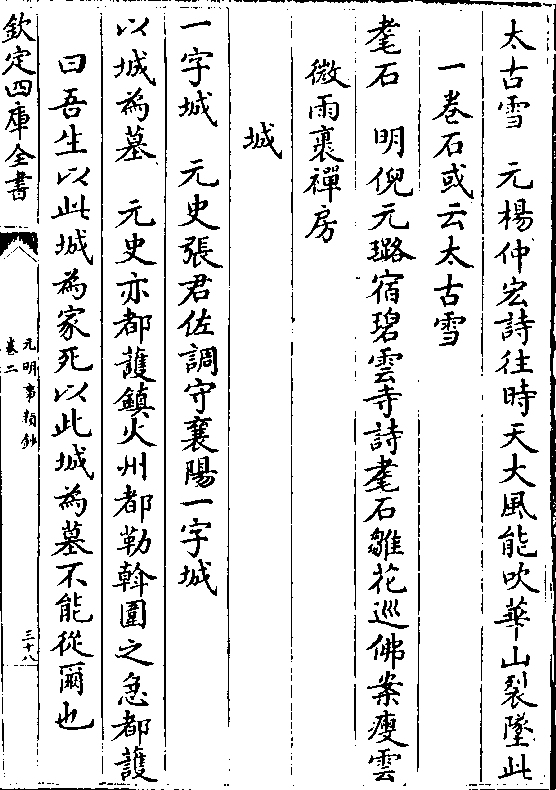 太古雪　元楊仲宏詩往時天大風能吹華山裂墜此
一卷石或云太古雪
耄石　明倪元璐宿碧雲寺詩耄石雛花巡佛案瘦雲
微雨裹禪房
城
一字城　元史張君佐調守襄陽一字城
以城為墓　元史亦都護鎮火州都勒斡圍之急都護
曰吾生以此城為家死以此城為墓不能從爾也
欽定四庫全書
元明事類鈔
卷二
三十八